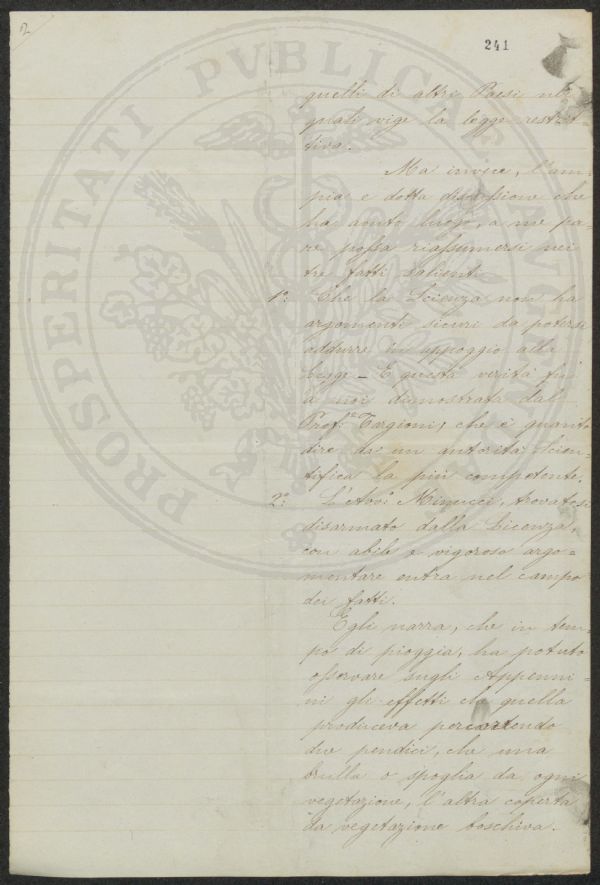 2
241
quelli di altri Paesi nei
quali vige la legge restrit=
tiva.
Ma invece, l'am=
pia e dotta discussione che
ha avuto luogo, a me pa=
re possa riassumersi nei
tre fatti salienti
1º: Che la Scienza non ha
argomenti sicuri da potersi
addurre in appoggio alla
Legge – E questa verità fu
a noi dimostrata dal
Prof: Targioni, che è quanto
dire da un autorità Scien=
tifica la più competente.
2º: L'Avv: Minucci, trovatosi
disarmato dalla Scienza,
con abile e vigoroso argo=
mentare entra nel campo
dei fatti.
Egli narra, che in tem=
po di pioggia, ha potuto
osservare sugli Appenni=
ni gli effetti che quella
produceva percuotendo
due pendici, che una
brulla o spoglia da ogni
vegetazione, l'altra coperta
da vegetazione boschiva.
PROSPERITATI PVBLICAE